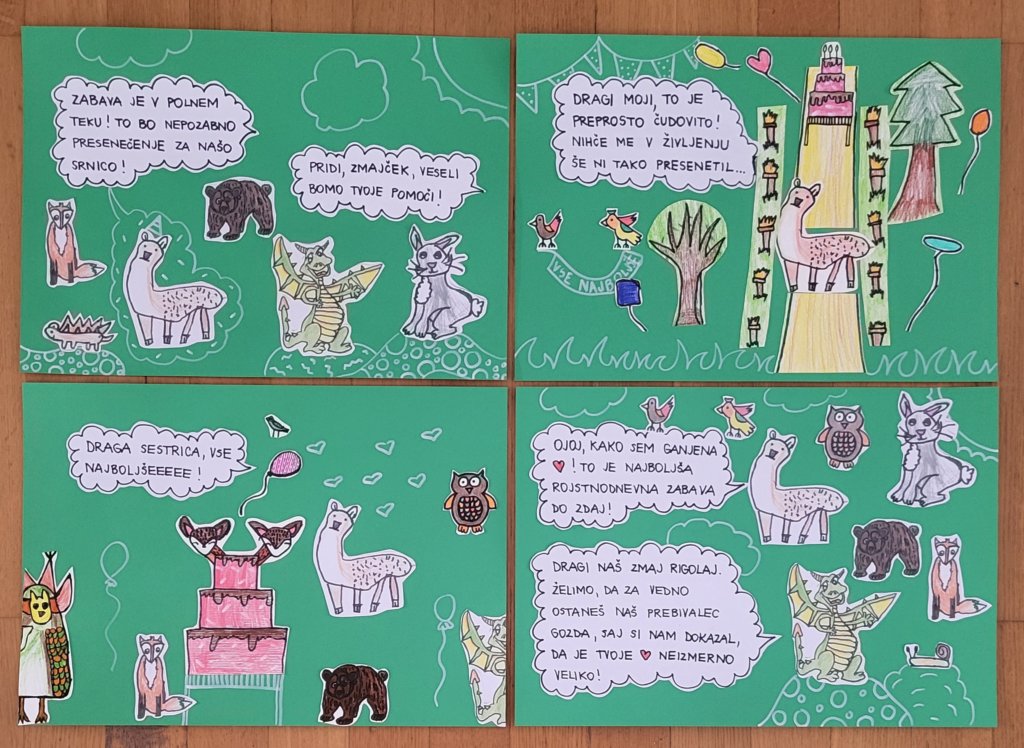 ZABAVA JE V POLNEM
TEKU! TO BO NEPOZABNO
PRESENEČENJE ZA NAŠO
SRNICO!
PRIDI, ZMAJČEK, VESELI
BOMO TVOJE POMOČI!
DRAGI MOJI, TO JE
PREPROSTO ČUDOVITO!
NIHČE ME V ŽIVLJENJU
ŠE NI TAKO PRESENETIL...
VSE NAJBOLJŠE
DRAGA SESTRICA, VSE
NAJBOLJŠEEEEE!
OJOJ, KAKO SEM GANJENA
♥! TO JE NAJBOLJŠA
ROJSTNODNEVNA ZABAVA
DO ZDAJ!
DRAGI NAŠ ZMAJ RIGOLAJ.
ŽELIMO, DA ZA VEDNO
OSTANEŠ NAŠ PREBIVALEC
GOZDA, SAJ SI NAM DOKAZAL,
DA JE TVOJE ♥ NEIZMERNO
VELIKO!